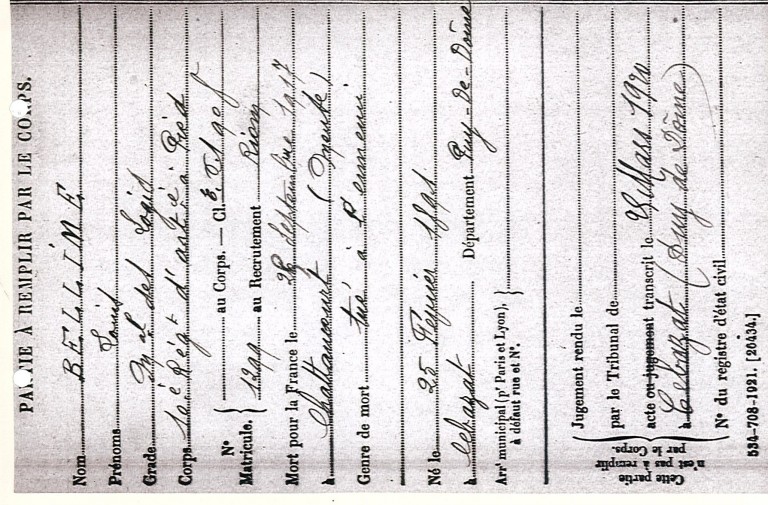 PARTIE À REMPLIR PAR LE CORPS.
Nom BELLIME
Prénoms Louis
Grade Mal des Logis
Corps Régt d'artie à Pied
N° Matricule.
au Corps. — Cl.
1299 au Recrutement Riom
Mort pour la France le 28 septembre 1917
à Chattancourt (Meuse)
Genre de mort tué à l'ennemi
Né le 25 Février
à Cébazat Département Puy-De-Dôme
Arrt municipal (pr Paris et Lyon), à défaut rue et N°.
Cette partie n'est pas à remplir par le Corps.
Jugement rendu le
par le Tribunal de
acte ou jugement transcrit le Mars 1920
à Cébazat (Puy de Dôme)
N° du registre d'état civil
534-708-1921. [26434.]